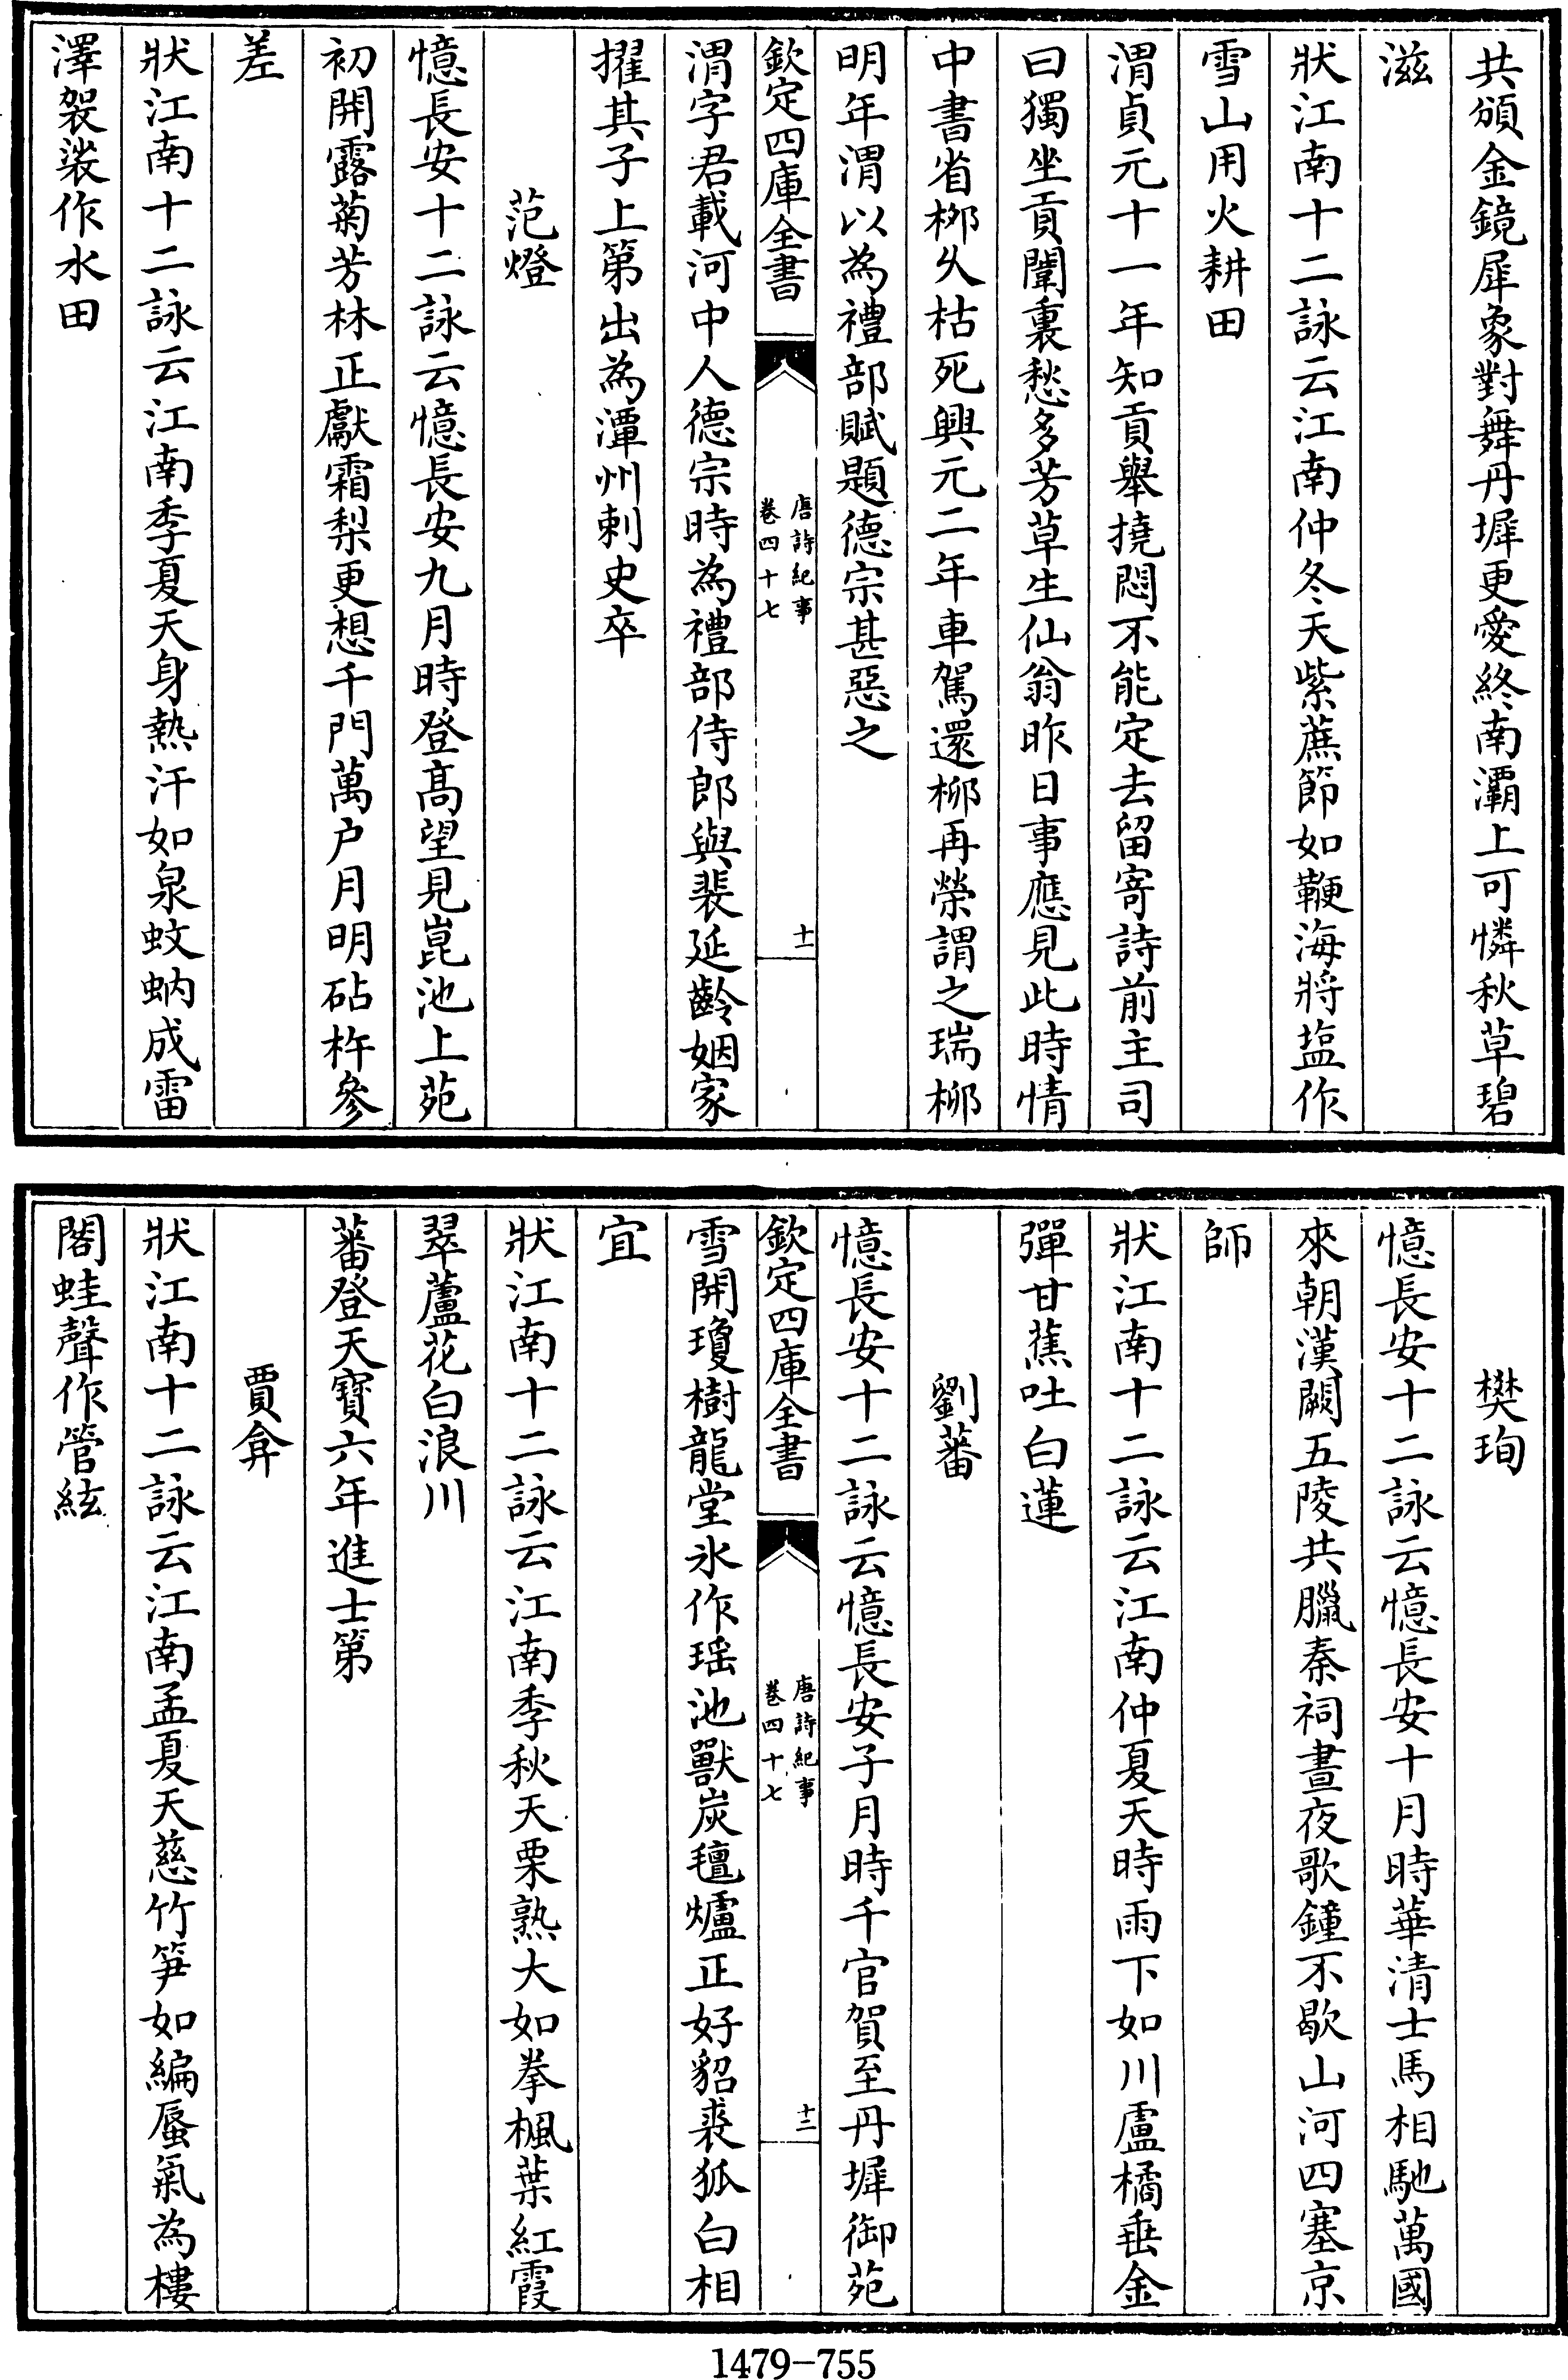 共頒金鏡犀象對舞丹墀更愛終南灞上可憐秋草碧
滋
狀江南十二詠云江南仲冬天紫蔗節如鞭海將塩作
雪山用火耕田
渭貞元十一年知貢舉撓悶不能定去留寄詩前主司
曰獨坐貢闈裏愁多芳草生仙翁昨日事應見此時情
中書省栁乆枯死興元二年車駕還栁再榮謂之瑞栁
明年渭以為禮部賦題德宗甚惡之
欽定四庫全書
唐詩紀事
卷四十七
十一
渭字君載河中人德宗時為禮部侍郎與裴延齡姻家
擢其子上第出為潭州刺史卒
范燈
憶長安十二詠云憶長安九月時登髙望見崑池上苑
初開露菊芳林正獻霜梨更想千門萬户月明砧杵參
差
狀江南十二詠云江南季夏天身熱汗如泉蚊蚋成雷
澤袈裟作水田
樊珣
憶長安十二詠云憶長安十月時華清士馬相馳萬國
來朝漢闕五陵共臘秦祠晝夜歌鐘不歇山河四塞京
師
狀江南十二詠云江南仲夏天時雨下如川盧橘垂金
彈甘蕉吐白蓮
劉蕃
憶長安十二詠云憶長安子月時千官賀至丹墀御苑
欽定四庫全書
唐詩紀事
卷四十七
十二
雪開瓊樹龍堂氷作瑶池獸炭氊爐正好貂裘狐白相
宜
狀江南十二詠云江南季秋天栗熟大如拳楓葉紅霞
翠蘆花白浪川
蕃登天寶六年進士第
賈弇
狀江南十二詠云江南孟夏天慈竹笋如編蜃氣為樓
閣蛙聲作管絃
1479-755